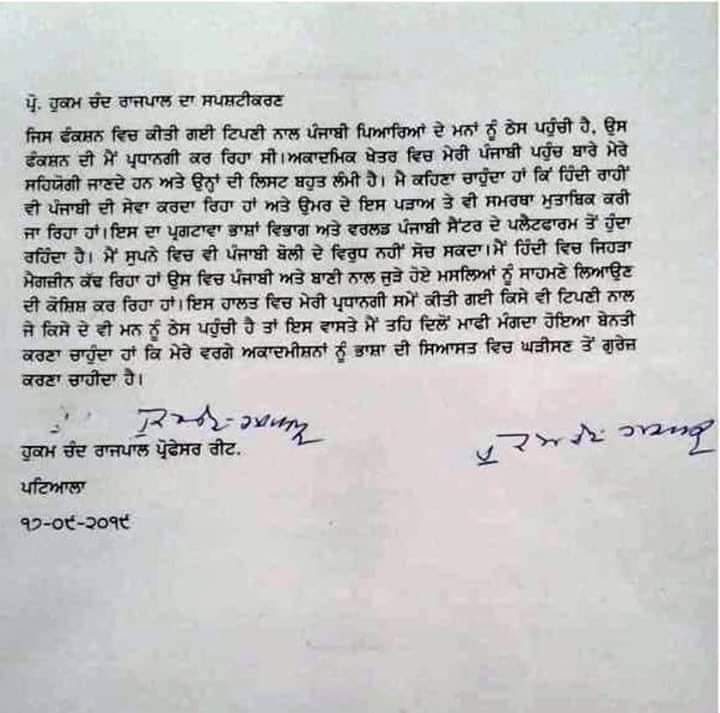 ਪ੍ਰੋ. ਹੁਕਮ ਚੰਦ ਰਾਜਪਾਲ ਦਾ ਸਪਸ਼ਟੀਕਰਣ
ਜਿਸ ਫੰਕਸ਼ਨ ਵਿਚ ਕੀਤੀ ਗਈ ਟਿਪਣੀ ਨਾਲ ਪੰਜਾਬੀ ਪਿਆਰਿਆਂ ਦੇ ਮਨਾਂ ਨੂੰ ਠੇਸ ਪਹੁੰਚੀ ਹੈ, ਉਸ
ਫੰਕਸ਼ਨ ਦੀ ਮੈਂ ਪ੍ਰਧਾਨਗੀ ਕਰ ਰਿਹਾ ਸੀ।ਅਕਾਦਮਿਕ ਖੇਤਰ ਵਿਚ ਮੇਰੀ ਪੰਜਾਬੀ ਪਹੁੰਚ ਬਾਰੇ ਮੇਰੇ
ਸਹਿਯੋਗੀ ਜਾਣਦੇ ਹਨ ਅਤੇ ਉਨ੍ਹਾਂ ਦੀ ਲਿਸਟ ਬਹੁਤ ਲੰਮੀ ਹੈ। ਮੈ ਕਹਿਣਾ ਚਾਹੁੰਦਾ ਹਾਂ ਕਿ ਹਿੰਦੀ ਰਾਹੀਂ
ਵੀ ਪੰਜਾਬੀ ਦੀ ਸੇਵਾ ਕਰਦਾ ਰਿਹਾ ਹਾਂ ਅਤੇ ਉਮਰ ਦੇ ਇਸ ਪੜਾਅ ਤੇ ਵੀ ਸਮਰਥਾ ਮੁਤਾਬਿਕ ਕਰੀ
ਜਾ ਰਿਹਾ ਹਾਂ।ਇਸ ਦਾ ਪ੍ਰਗਟਾਵਾ ਭਾਸ਼ਾਂ ਵਿਭਾਗ ਅਤੇ ਵਰਲਡ ਪੰਜਾਬੀ ਸੈਂਟਰ ਦੇ ਪਲੈਟਫਾਰਮ ਤੋਂ ਹੁੰਦਾ
ਰਹਿੰਦਾ ਹੈ। ਮੈਂ ਸੁਪਨੇ ਵਿਚ ਵੀ ਪੰਜਾਬੀ ਬੋਲੀ ਦੇ ਵਿਰੁਧ ਨਹੀਂ ਸੋਚ ਸਕਦਾ।ਮੈਂ ਹਿੰਦੀ ਵਿਚ ਜਿਹੜਾ
ਮੈਗਜ਼ੀਨ ਕੱਢ ਰਿਹਾ ਹਾਂ ਉਸ ਵਿਚ ਪੰਜਾਬੀ ਅਤੇ ਬਾਣੀ ਨਾਲ ਜੁੜੇ ਹੋਏ ਮਸਲਿਆਂ ਨੂੰ ਸਾਹਮਣੇ ਲਿਆਉਣ
ਦੀ ਕੋਸ਼ਿਸ਼ ਕਰ ਰਿਹਾ ਹਾਂ।ਇਸ ਹਾਲਤ ਵਿਚ ਮੇਰੀ ਪ੍ਰਧਾਨਗੀ ਸਮੇਂ ਕੀਤੀ ਗਈ ਕਿਸੇ ਵੀ ਟਿਪਣੀ ਨਾਲ
ਜੇ ਕਿਸੇ ਦੇ ਵੀ ਮਨ ਨੂੰ ਠੇਸ ਪਹੁੰਚੀ ਹੈ ਤਾਂ ਇਸ ਵਾਸਤੇ ਮੈਂ ਤਹਿ ਦਿਲੋਂ ਮਾਫੀ ਮੰਗਦਾ ਹੋਇਆ ਬੇਨਤੀ
ਕਰਣਾ ਚਾਹੁੰਦਾ ਹਾਂ ਕਿ ਮੇਰੇ ਵਰਗੇ ਅਕਾਦਮੀਸ਼ਨਾਂ ਨੂੰ ਭਾਸ਼ਾ ਦੀ ਸਿਆਸਤ ਵਿਚ ਘੜੀਸਣ ਤੋਂ ਗੁਰੇਜ਼
ਕਰਣਾ ਚਾਹੀਦਾ ਹੈ।
ਹੁਕਮ ਚੰਦ ਰਾਜਪਾਲ ਪ੍ਰੋਫੈਸਰ ਰੀਟ.
ਪਟਿਆਲਾ
੧੭-੦੯-੨੦੧੯